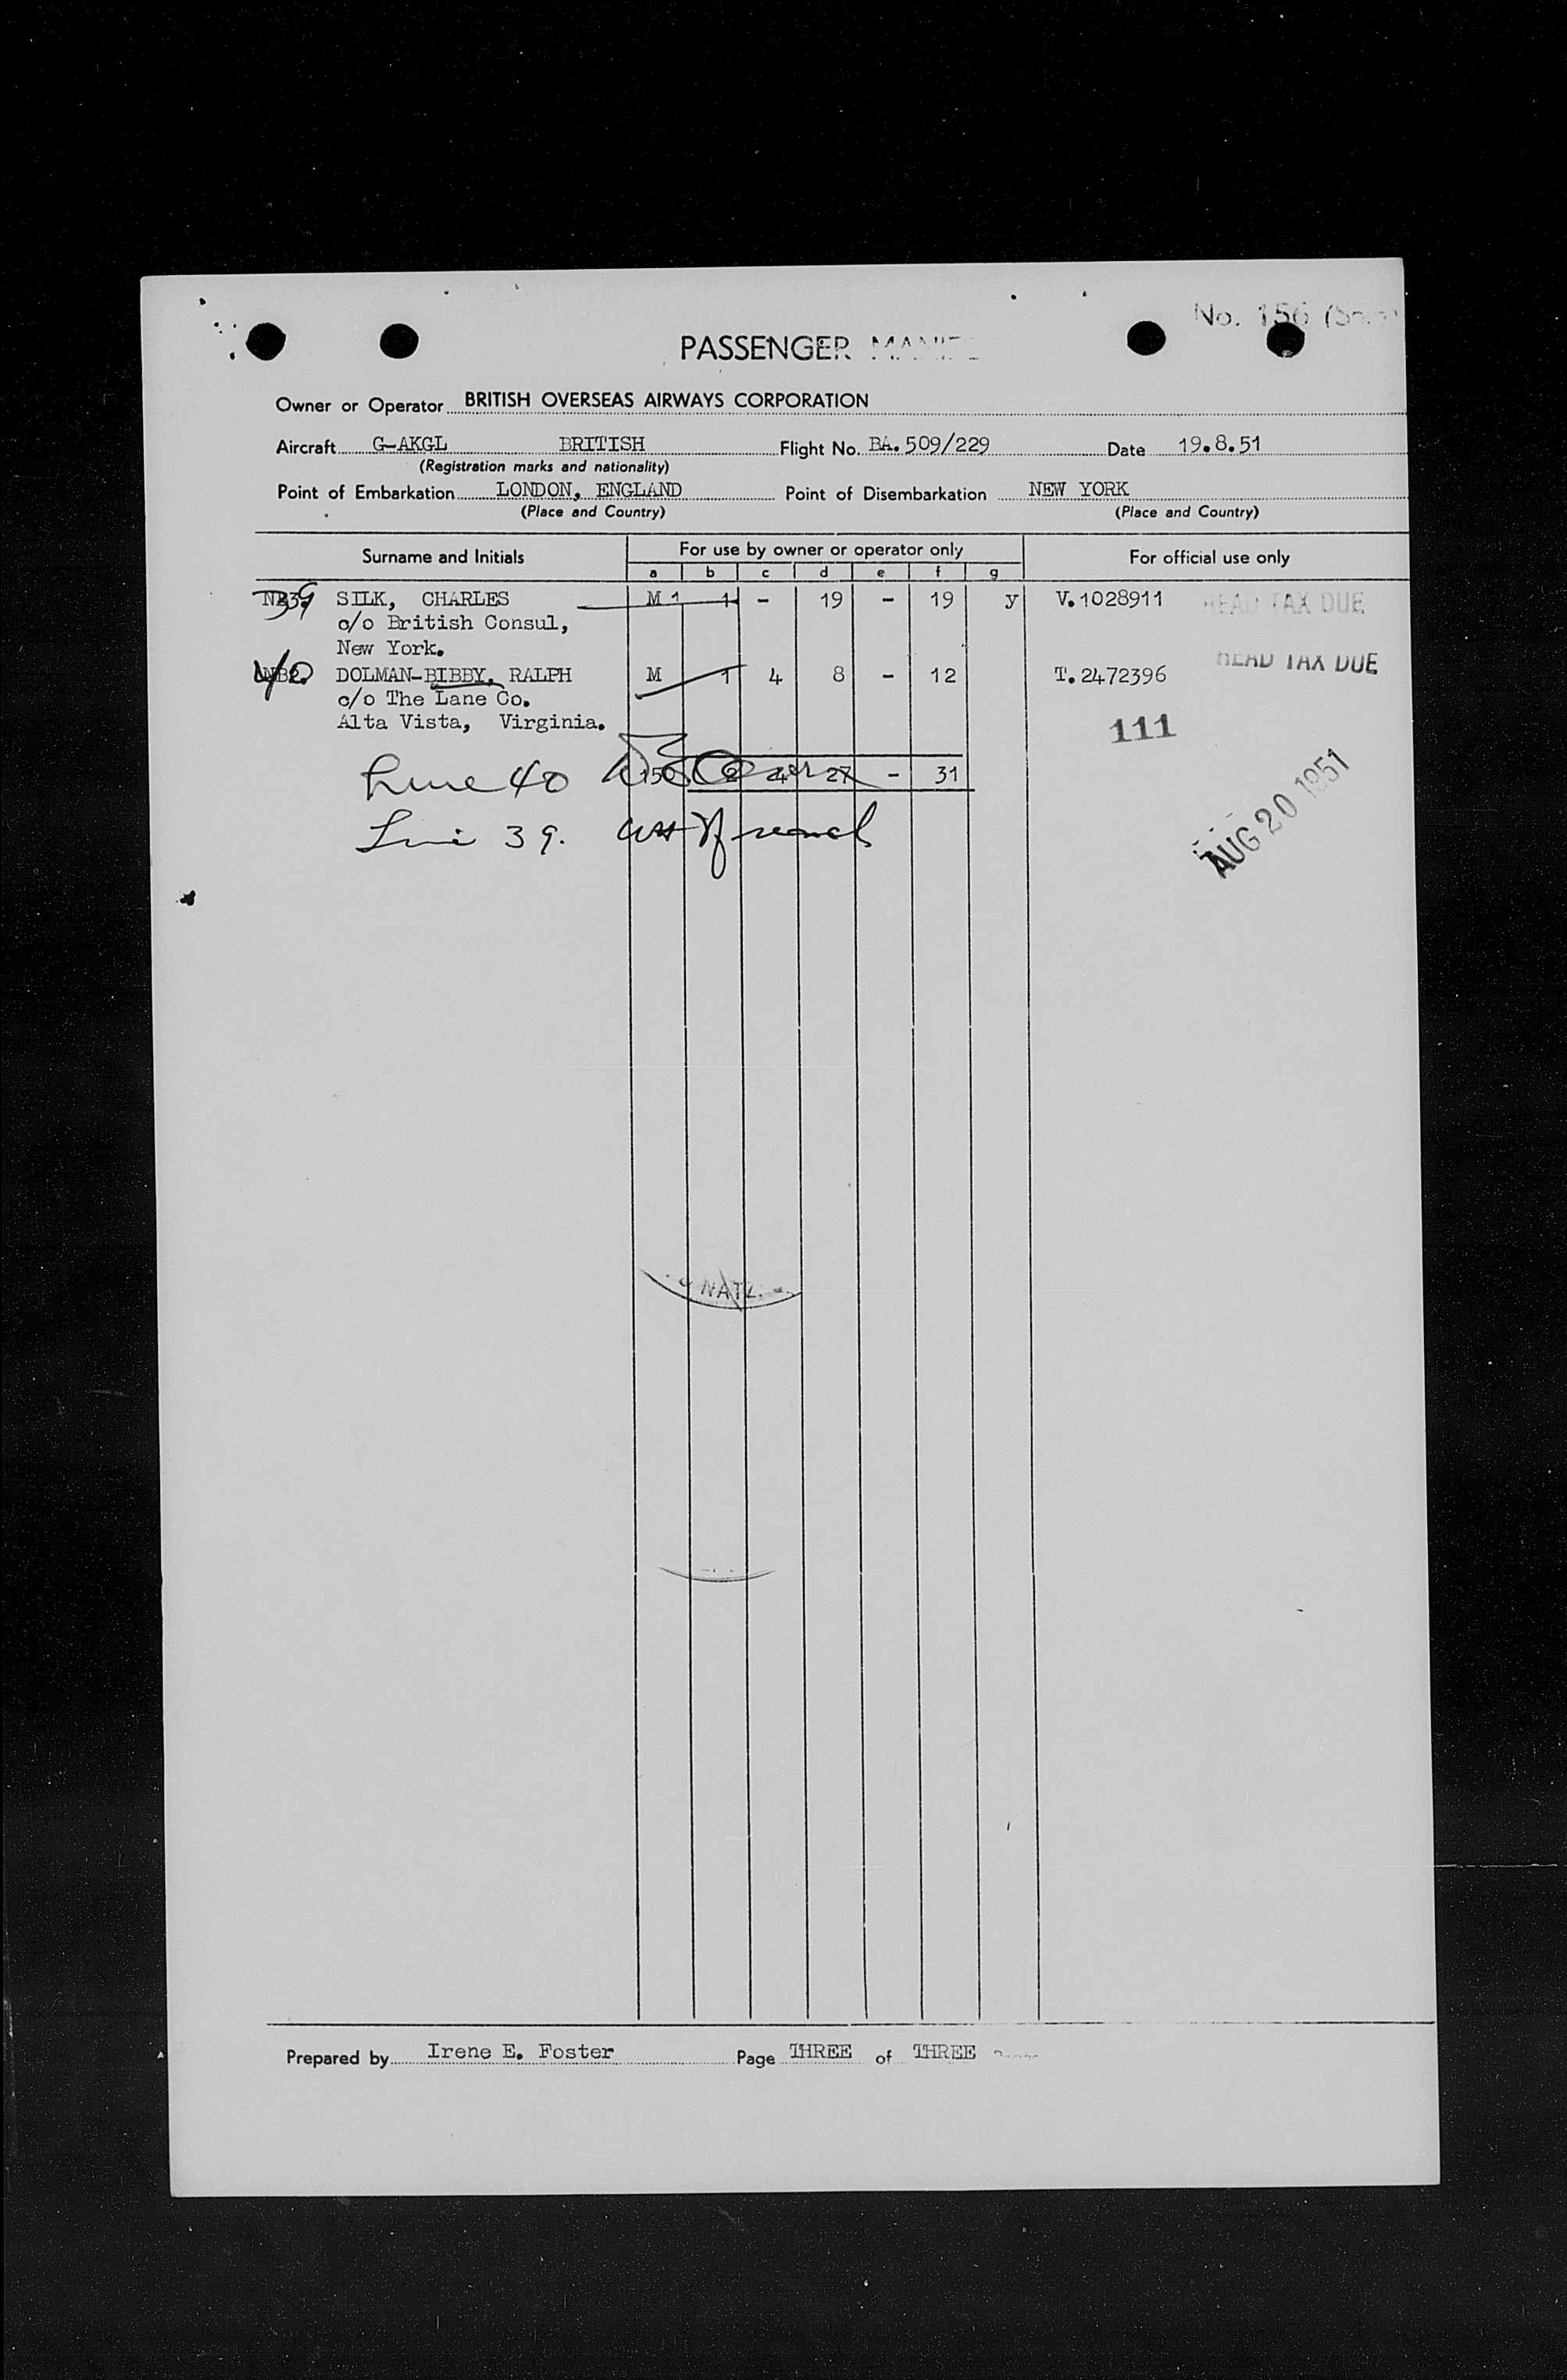 No. 156
PASSENGER
Owner or Operator BRITISH OVERSEAS AIRWAYS CORPORATION
Aircraft G-AKGL BRITISH Flight No. BA.509/229 Date 19.8.51
(Registration marks and nationality)
Point of Embarkation LONDON, ENGLAND Point of Disembarkation NEW YORK
(Place and Country) (Place and Country)
Surname and Initials For use by owner or operator only For official use only
a b c d e f g
39 SILK, CHARLES M 1 1 - 19 - 19 y V.1028911 HEAD TAX DUE
c/o British Consul,
New York.
40 DOLMAN-BIBBY, RALPH M 1 4 8 - 12 T.2472396 HEAD TAX DUE
c/o The Lane Co.
Alta Vista, Virginia.
111
Line 40 150 2 4 27 - 31
AUG 20 1951
Line 39.
NATZ.
Prepared by Irene E. Foster Page THREE of THREE